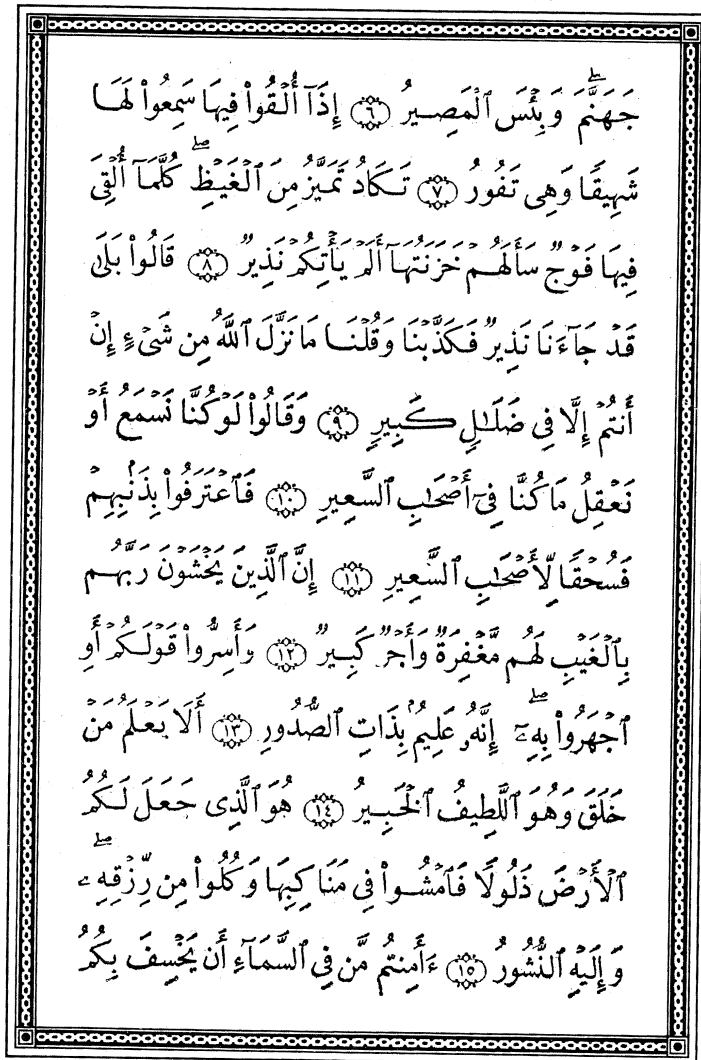 جَهَنَّمَۖ وَبِئۡسَ ٱلۡمَصِيرُ ٦ إِذَآ أُلۡقُواْ فِيهَا سَمِعُواْ لَهَا
شَهِيقٗا وَهِيَ تَفُورُ ٧ تَكَادُ تَمَيَّزُ مِنَ ٱلۡغَيۡظِۖ كُلَّمَآ أُلۡقِيَ
فِيهَا فَوۡجٞ سَأَلَهُمۡ خَزَنَتُهَآ أَلَمۡ يَأۡتِكُمۡ نَذِيرٞ ٨ قَالُواْ بَلَىٰ
قَدۡ جَآءَنَا نَذِيرٞ فَكَذَّبۡنَا وَقُلۡنَا مَا نَزَّلَ ٱللَّهُ مِن شَيۡءٍ إِنۡ
أَنتُمۡ إِلَّا فِي ضَلَٰلٖ كَبِيرٖ ٩ وَقَالُواْ لَوۡ كُنَّا نَسۡمَعُ أَوۡ
نَعۡقِلُ مَا كُنَّا فِيٓ أَصۡحَٰبِ ٱلسَّعِيرِ ١٠ فَٱعۡتَرَفُواْ بِذَنۢبِهِمۡ
فَسُحۡقٗا لِّأَصۡحَٰبِ ٱلسَّعِيرِ ١١ إِنَّ ٱلَّذِينَ يَخۡشَوۡنَ رَبَّهُم
بِٱلۡغَيۡبِ لَهُم مَّغۡفِرَةٞ وَأَجۡرٞ كَبِيرٞ ١٢ وَأَسِرُّواْ قَوۡلَكُمۡ أَوِ
ٱجۡهَرُواْ بِهِۦٓۖ إِنَّهُۥ عَلِيمُۢ بِذَاتِ ٱلصُّدُورِ ١٣ أَلَا يَعۡلَمُ مَنۡ
خَلَقَ وَهُوَ ٱللَّطِيفُ ٱلۡخَبِيرُ ١٤ هُوَ ٱلَّذِي جَعَلَ لَكُمُ
ٱلۡأَرۡضَ ذَلُولٗا فَٱمۡشُواْ فِي مَنَاكِبِهَا وَكُلُواْ مِن رِّزۡقِهِۦۖ
وَإِلَيۡهِ ٱلنُّشُورُ ١٥ ءَأَمِنتُم مَّن فِي ٱلسَّمَآءِ أَن يَخۡسِفَ بِكُمُ